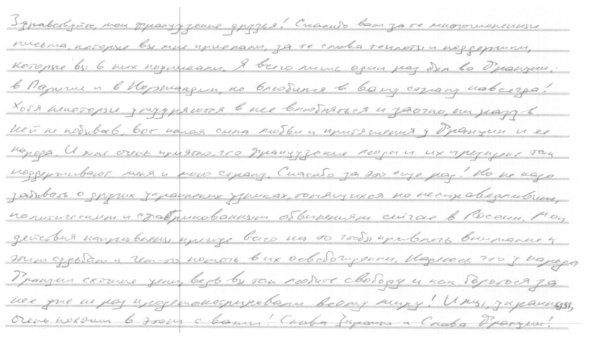 Здравствуйте, мои французские друзья! Спасибо вам за те многочисленные
письма, которые вы мне прислали, за те слова теплоты и поддержки,
которые вы в них написали. Я всего лишь один раз был во Франции:
в Париже и в Нормандии, но влюбился в вашу страну навсегда!
Хотя некоторые умудряются в нее влюбляться и заочно, ни разу в
ней не побывав. Вот такая сила любви и притяжения у Франции и ее
народа. И мне очень приятно, что французские люди и их президент так
поддерживают меня и мою страну. Спасибо за это еще раз! Но не надо
забывать о других украинских узниках, томящихся по несправедливым,
политическим и сфабрикованным обвинениям сейчас в России. Мои
действия направлены прежде всего на то чтобы привлечь внимание к
этим судьбам и помочь в их освобождении. Надеюсь что у народа
Франции ведь вы так любите свободу и как бороться за
нее уже не раз продемонстрировали всему миру! И мы, украинцы,
очень похожи в этом с вами! Слава Украине и Слава Франции!